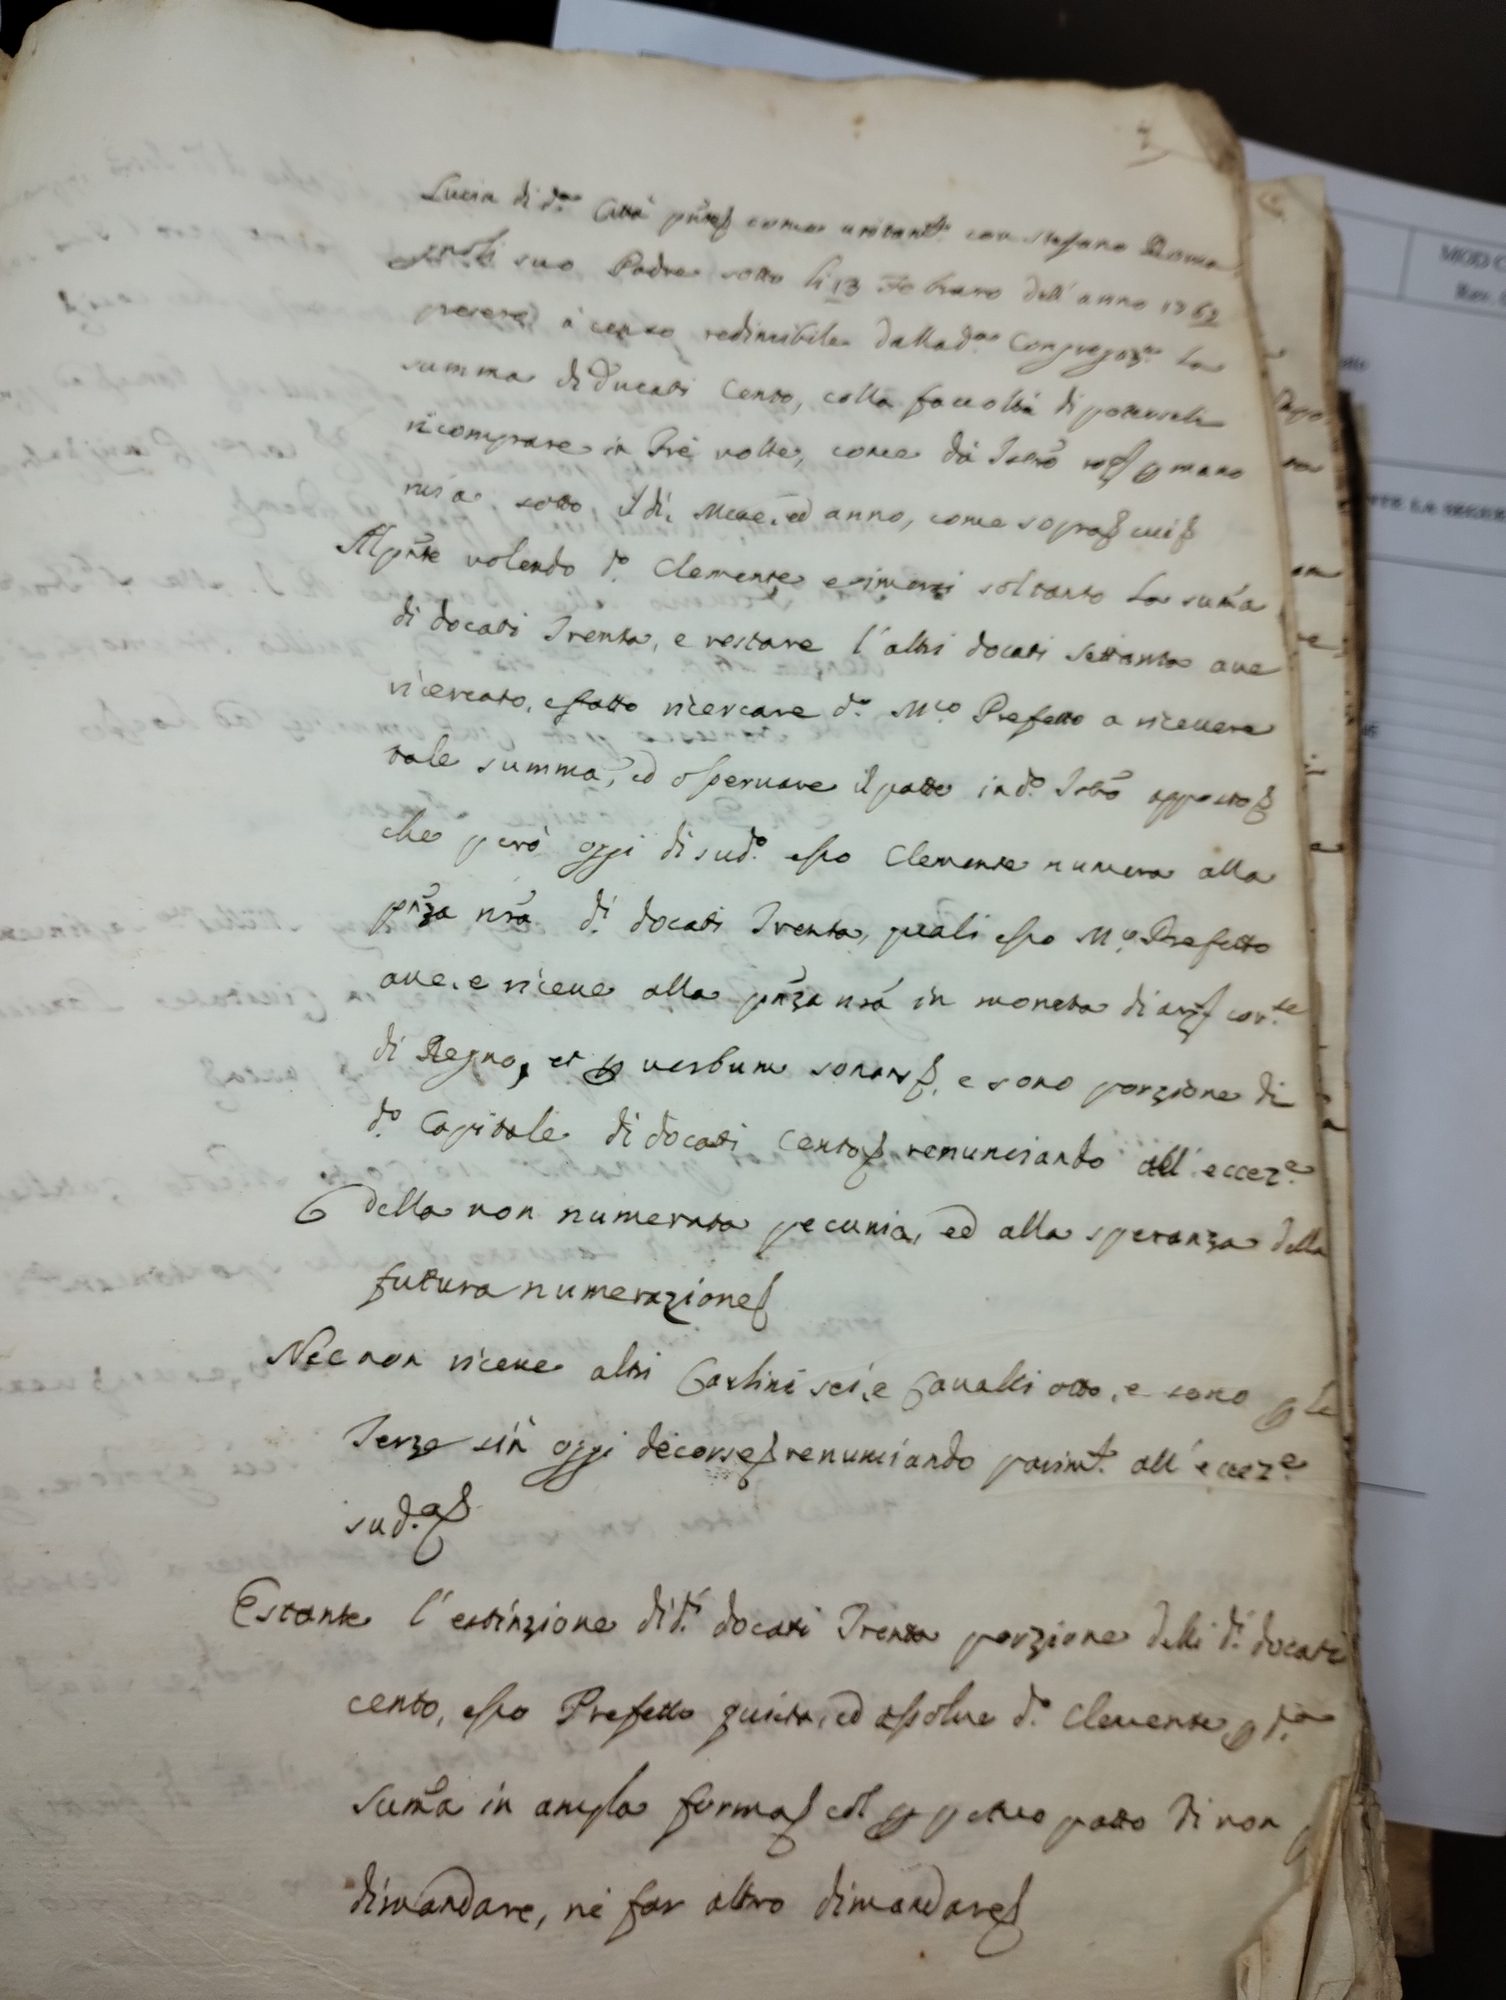 7
Lucia di d.ª Città pñte come unitam.te con Stefano Roma
gnoli suo Padre sotto li 13 Febraro dell'anno 1762
presero à censo redimibile dalla d.ª Congregaz.ne la
summa di Ducati Cento, colla facoltà di poterseli
ricomprare in Trè volte, come dà Istrõ rog. p mano
mia sotto il dì, Mese, ed anno, come sopra
Al pñte volendo d.º Clemente esimersi soltanto la sum̃a
di docati Trenta, e restare l'altri docati settanta ave
ricercato, e fatto ricercare d.º M.co Prefetto a ricevere
tale summa, ed osservare il patto in d.º Istrõ apposto
che però oggi dì sud.º esso Clemente numera alla
pñza nrã d.i docati Trenta, quali esso M.co Prefetto
ave, e riceve alla pñza nrã in moneta di arg. cor.te
di Regno, et p verbum sonan., e sono porzione di
d.º Capitale di docati Cento renunciando all'eccez.e
della non numerata pecunia, ed alla speranza della
futura numerazione
Nec non riceve altri Carlini sei, e Cavalli otto, e sono p le
Terze sin oggi decorse renunciando parim.te all'eccez.e
sud.ª
E stante l'estinzione di d.i docati Trenta porzione delli d.i docati
cento, esso Prefetto quieta, ed assolve d.º Clemente p d.ª
sum̃a in ampla forma col p petuo patto di non
dimandare, nè far altro dimandare
MOD C
Rev.